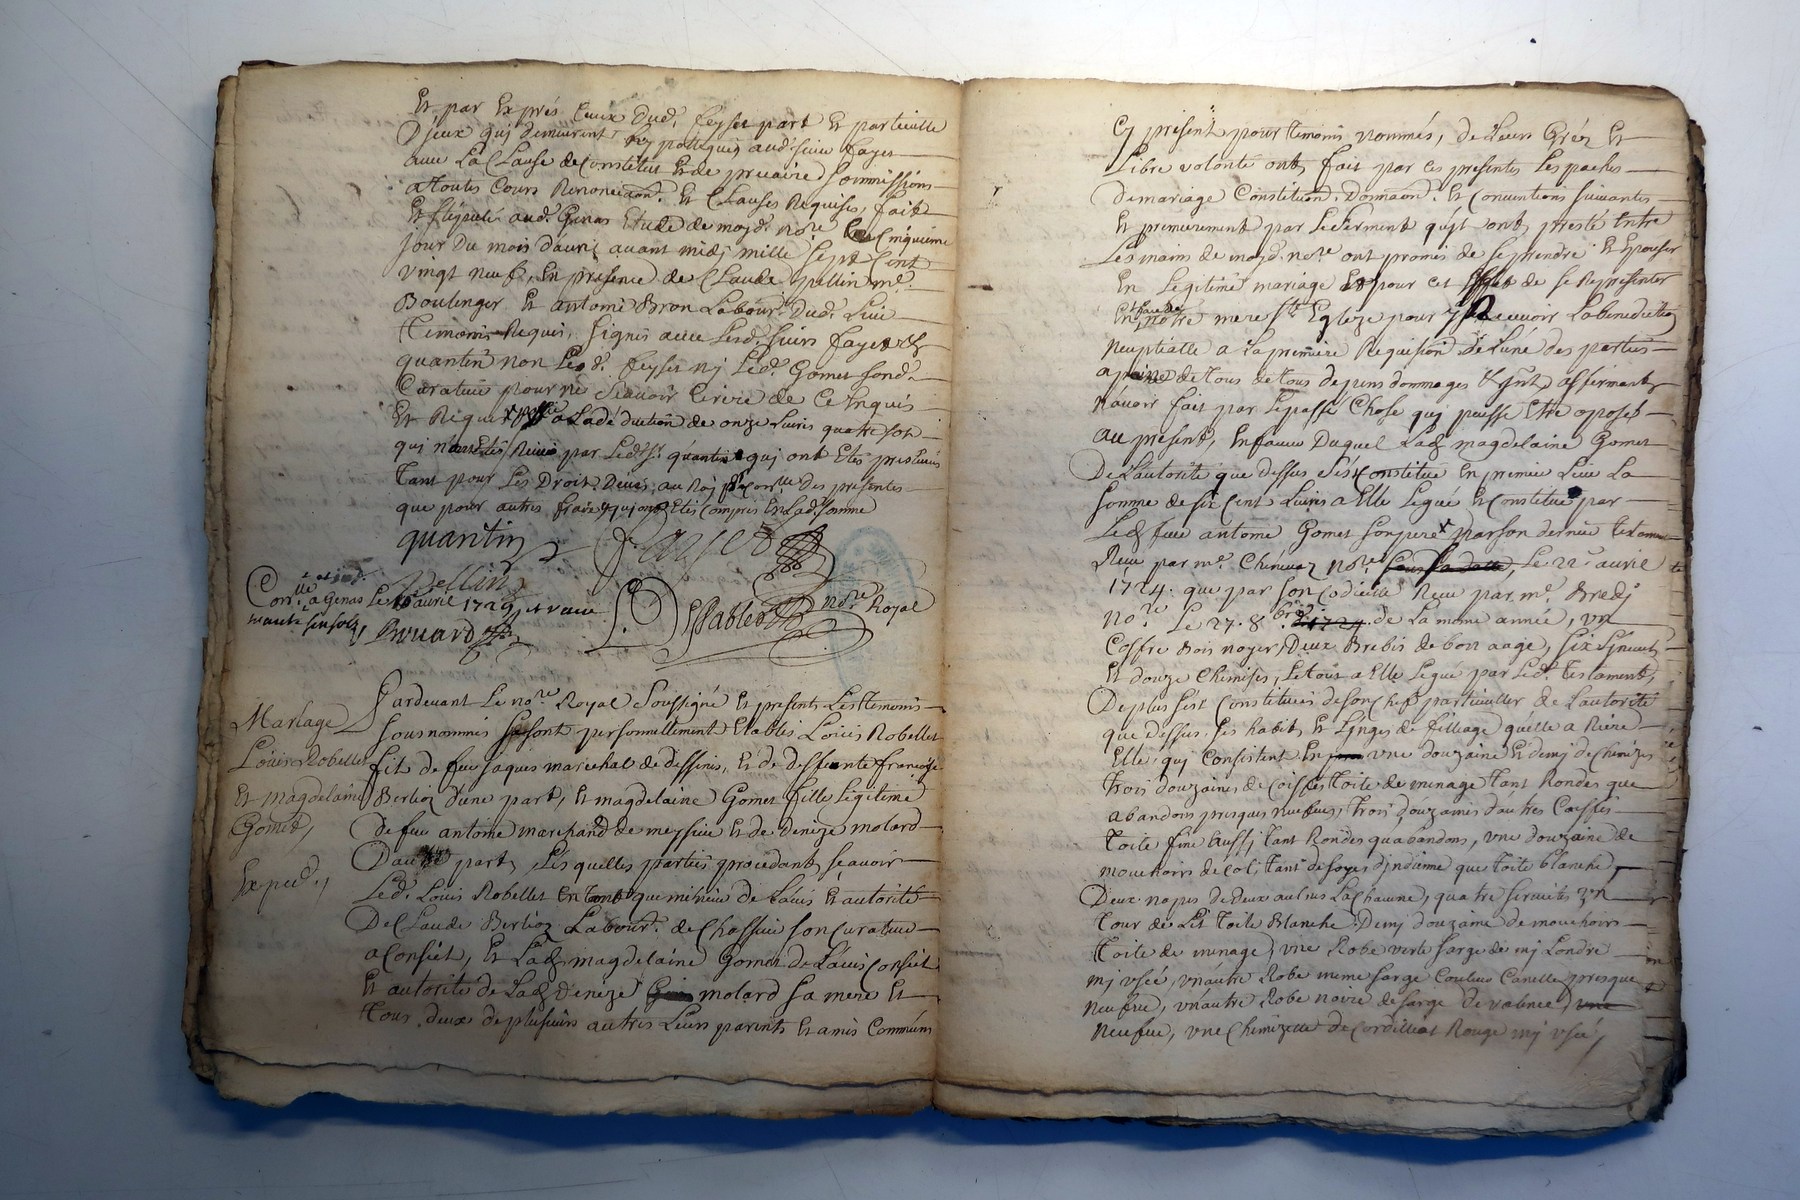 Et par Exprés Ceux Dud. feyset part Et particulle
Djeux quj demeurent hypottequés aud. sieur fayet
avec La Clause de Constitut Et de precaire Sommissions
a toutes Cours Renonciaon. Et Clauses Requises, fait
Et stipulé aud. Genas Etude de moyd. nore Le Cinquieme
jour du mois d'avril avant midj mille Sept Cent
vingt neuf, En presence de Claude pellin me.
Boulenger Et antome Bron Labour. Dud. Lieu
Temoins Requis, signés avec Lesd. sieurs fayet &
quantin non Led. feyset nj Led. Gomet sond.
Curateur pour ne scavoir Ecrire de Ce Enquis
Et Requis a La deduction de onze Livres quatre sols
quj par Led. Sr. quantin quj ont Etés
tant pour Les Droit Deües au Roj des presentes
que pour autres fraix quj ont Etés Compris En Lad. somme
quantin fayet
Pellin
Conlle a Genas Le avril 1729
Brouard Sablet nore Royal
Mariage
Loüis Robellet
Et magdelaine
Gomet,
Exped.
Pardevant Le nore Royal Soussigné Et presents Les temoins
sousnommés se sont personnellement Etablis Loüis Robellet
fils de feu jaques marechal de dessinis, Et de deffunte françoise
Berlioz d'une part, Et magdelaine Gomet fille Legitime
de feu antome marchand de messieu Et de denize molard
D'autre part, Les quelles parties procedant scavoir
Led. Loüis Robellet En tant que mineur de L'avis Et autorité
De Claude Berlioz Labour. de Chassieu son Curateur
a Conseil, Et Lad. magdelaine Gomet de L'avis Conseil
Et autorité de Lad. denize molard sa mere Et
tous deux de plusieurs autres Leurs parents Et amis Communs
Cy présent pour temoins nommés, de Leurs Gréz Et
Libre volonté ont fait par ces presentes Les paches
de mariage Constitution. Donnaon. Et Conventions suivantes
Et premierement par Le serment qu'ils ont presté Entre
Les mains de moyd. nore ont promis de se prendre Et Epouser
En Legitime mariage Et pour cet Effet de se Representer
En nôtre mere Ste Eglize pour y Recevoir La benediction
neuptialle a La premiere Requision de L'une des parties
a peine de tous de tous depens dommages
navoir fait par Le passé Chose quj puisse Etre oposé
au present, En faveur Duquel Lad. magdelaine Gomet
De L'autorité que dessus s'est Constitué En premier Lieu La
somme de six Cent Livres a Elle Legué Et Constitué par
Led. feu antome Gomet son pere par son dernier testament
Receu par me. Chenevaz nore Le 22. avril
1724. que par son Codicille Receu par me. Bredj
nore Le 27. 8bre de La meme année, un
Coffre Bois noyer, Deux Brebis de bon aage, six
Et douze Chemises, Le tout a Elle Legué par Led. testament,
De plus s'est Constituée de son Chef particullier de L'autorité
que dessus, ses habits, Et Linges de filliage qu'elle a Riere
Elle, quj Consistent En une douzaine Et demj de Chemizes
trois douzaines de Coiffes toile de menage tant Rondes que
abandons presques neufves, trois douzaines d'autres Coiffes
toile fine aussj tant Rondes qu'abandons, une douzaine de
mouchoirs de Col, tant de soye d'jndienne que toile blanche,
Deux napes de deux aulnes La Chacune, quatre serviettes un
tour de Lit toile Blanche Demj douzaine de mouchoirs
toile de menage, une Robe verte sarge de mj Londre
mj usée, un autre Robe meme sarge Couleur Canelle presque
neufve, un autre Robe noire de sarge de valence,
neufve, une Chemizette de Cordilliat Rouge mj usée,